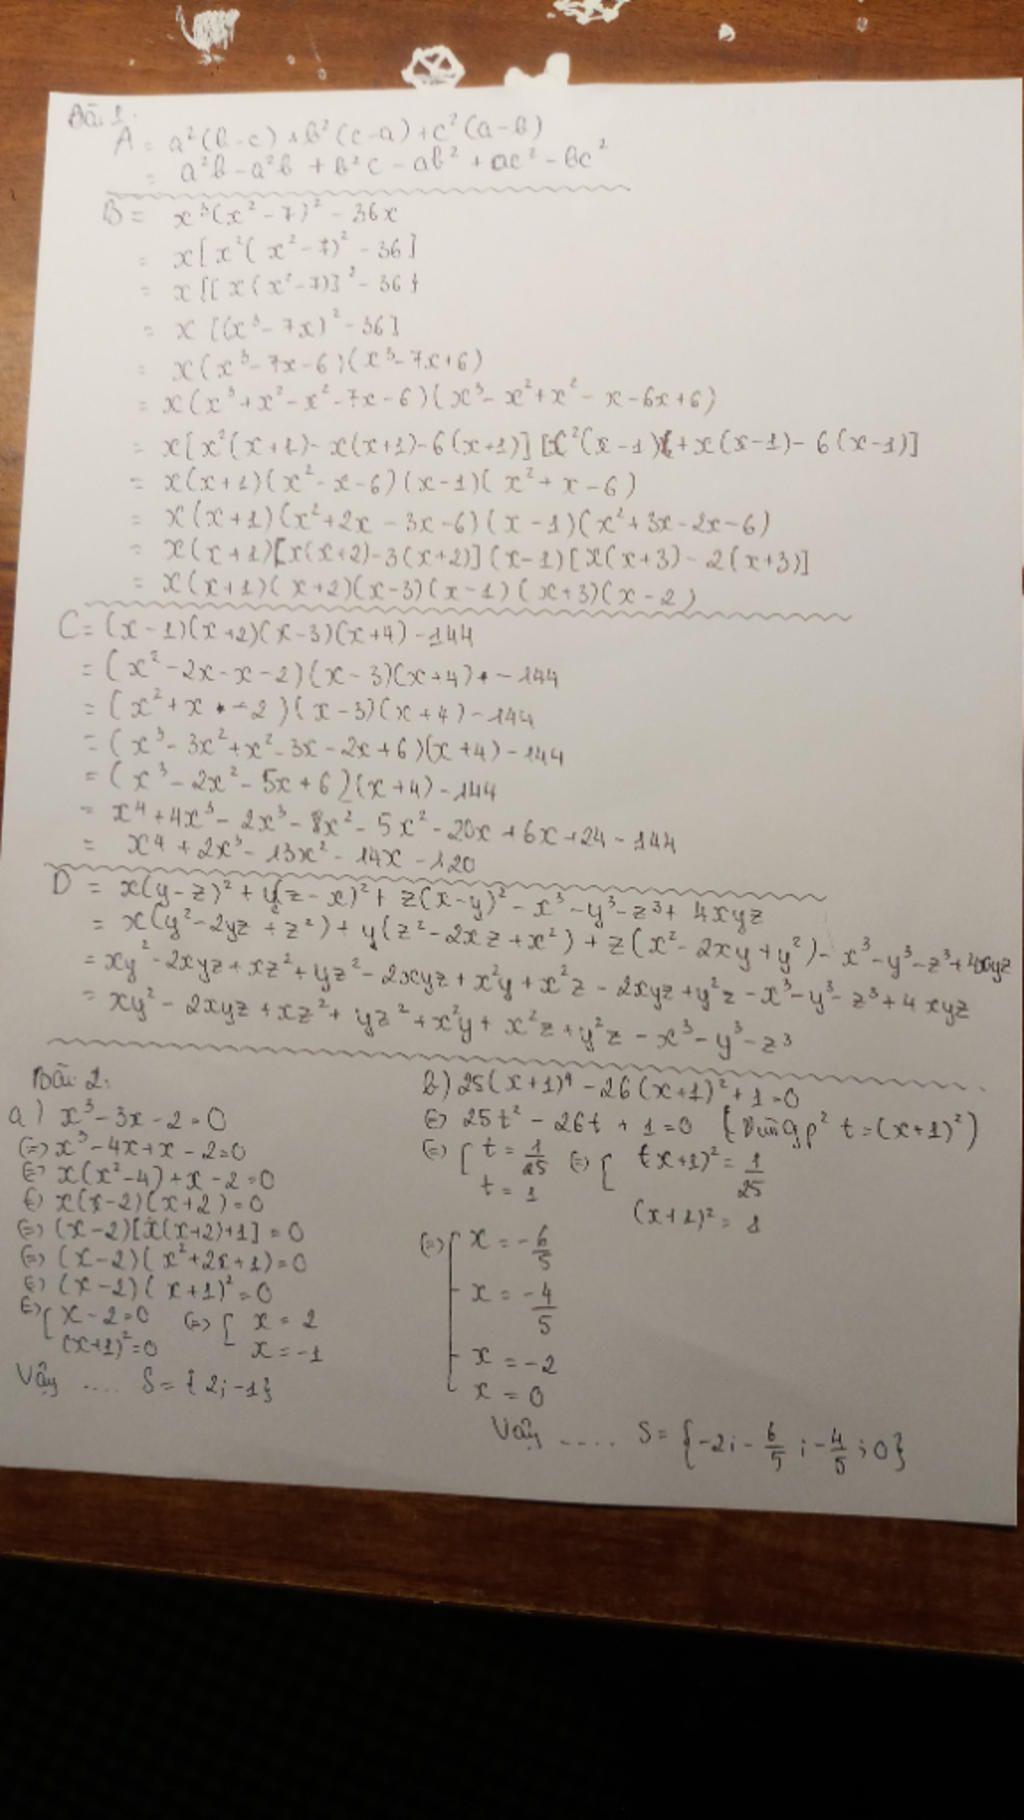 Bài 1:
A = a²(b-c) + b²(c-a) + c²(a-b)
= a²b - a²b + b²c - ab² + ac² - bc²
B = x³(x²-7)² - 36x
= x[x²(x²-7)² - 36]
= x{[x(x²-7)]² - 36}
= x[(x³-7x)² - 36]
= x(x³-7x-6)(x³-7x+6)
= x(x³+x²-x²-7x-6)(x³-x²+x²-x-6x+6)
= x[x²(x+1)-x(x+1)-6(x+1)][x²(x-1)+x(x-1)-6(x-1)]
= x(x+1)(x²-x-6)(x-1)(x²+x-6)
= x(x+1)(x²+2x-3x-6)(x-1)(x²+3x-2x-6)
= x(x+1)[x(x+2)-3(x+2)](x-1)[x(x+3)-2(x+3)]
= x(x+1)(x+2)(x-3)(x-1)(x+3)(x-2)
C = (x-1)(x+2)(x-3)(x+4)-144
= (x²-2x-x-2)(x-3)(x+4)-144
= (x²+x-2)(x-3)(x+4)-144
= (x³-3x²+x²-3x-2x+6)(x+4)-144
= (x³-2x²-5x+6)(x+4)-144
= x⁴+4x³-2x³-8x²-5x²-20x+6x+24-144
= x⁴+2x³-13x²-14x-120
D = x(y-z)²+y(z-x)²+z(x-y)²-x³-y³-z³+4xyz
= x(y²-2yz+z²)+y(z²-2xz+x²)+z(x²-2xy+y²)-x³-y³-z³+4xyz
= xy²-2xyz+xz²+yz²-2xyz+x²y+x²z-2xyz+y²z-x³-y³-z³+4xyz
= xy²-2xyz+xz²+yz²+x²y+x²z+y²z-x³-y³-z³
Bài 2:
a) x³-3x-2=0
(=) x³-4x+x-2=0
(=) x(x²-4)+x-2=0
(=) x(x-2)(x+2)=0
(=) (x-2)[x(x+2)+1]=0
(=) (x-2)(x²+2x+1)=0
(=) (x-2)(x+1)²=0
(=) [x-2=0 (=) [x=2
(x+1)²=0 x=-1
Vậy .... S={2;-1}
b) 25(x+1)⁴-26(x+1)²+1=0
(=) 25t²-26t+1=0 t=(x+1)²)
(=) [t=1/25 (=) [(x+1)²=1/25
t=1 (x+1)²=1
(=) [x=-6/5
x=-4/5
x=-2
x=0
Vậy .... S={-2;-6/5;-4/5;0}